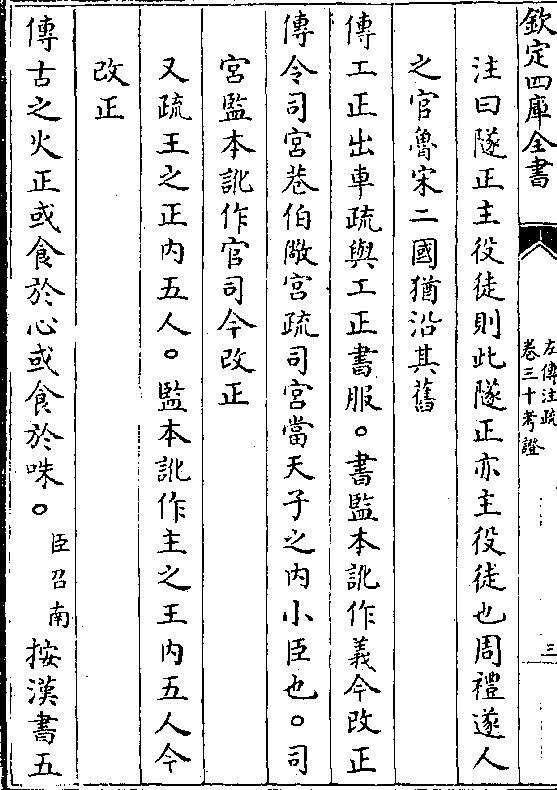 欽定四庫全書
左傳注疏
卷三十考證
三
注曰隧正主役徒則此隧正亦主役徒也周禮遂人
之官魯宋二國猶沿其舊
傳工正出車疏與工正書服。書監本訛作義今改正
傳令司宮巷伯儆宮疏司宮當天子之內小臣也。司
宮監本訛作官司今改正
又疏王之正內五人。監本訛作主之王內五人今
改正
傳古之火正或食於心或食於咮。臣召南按漢書五